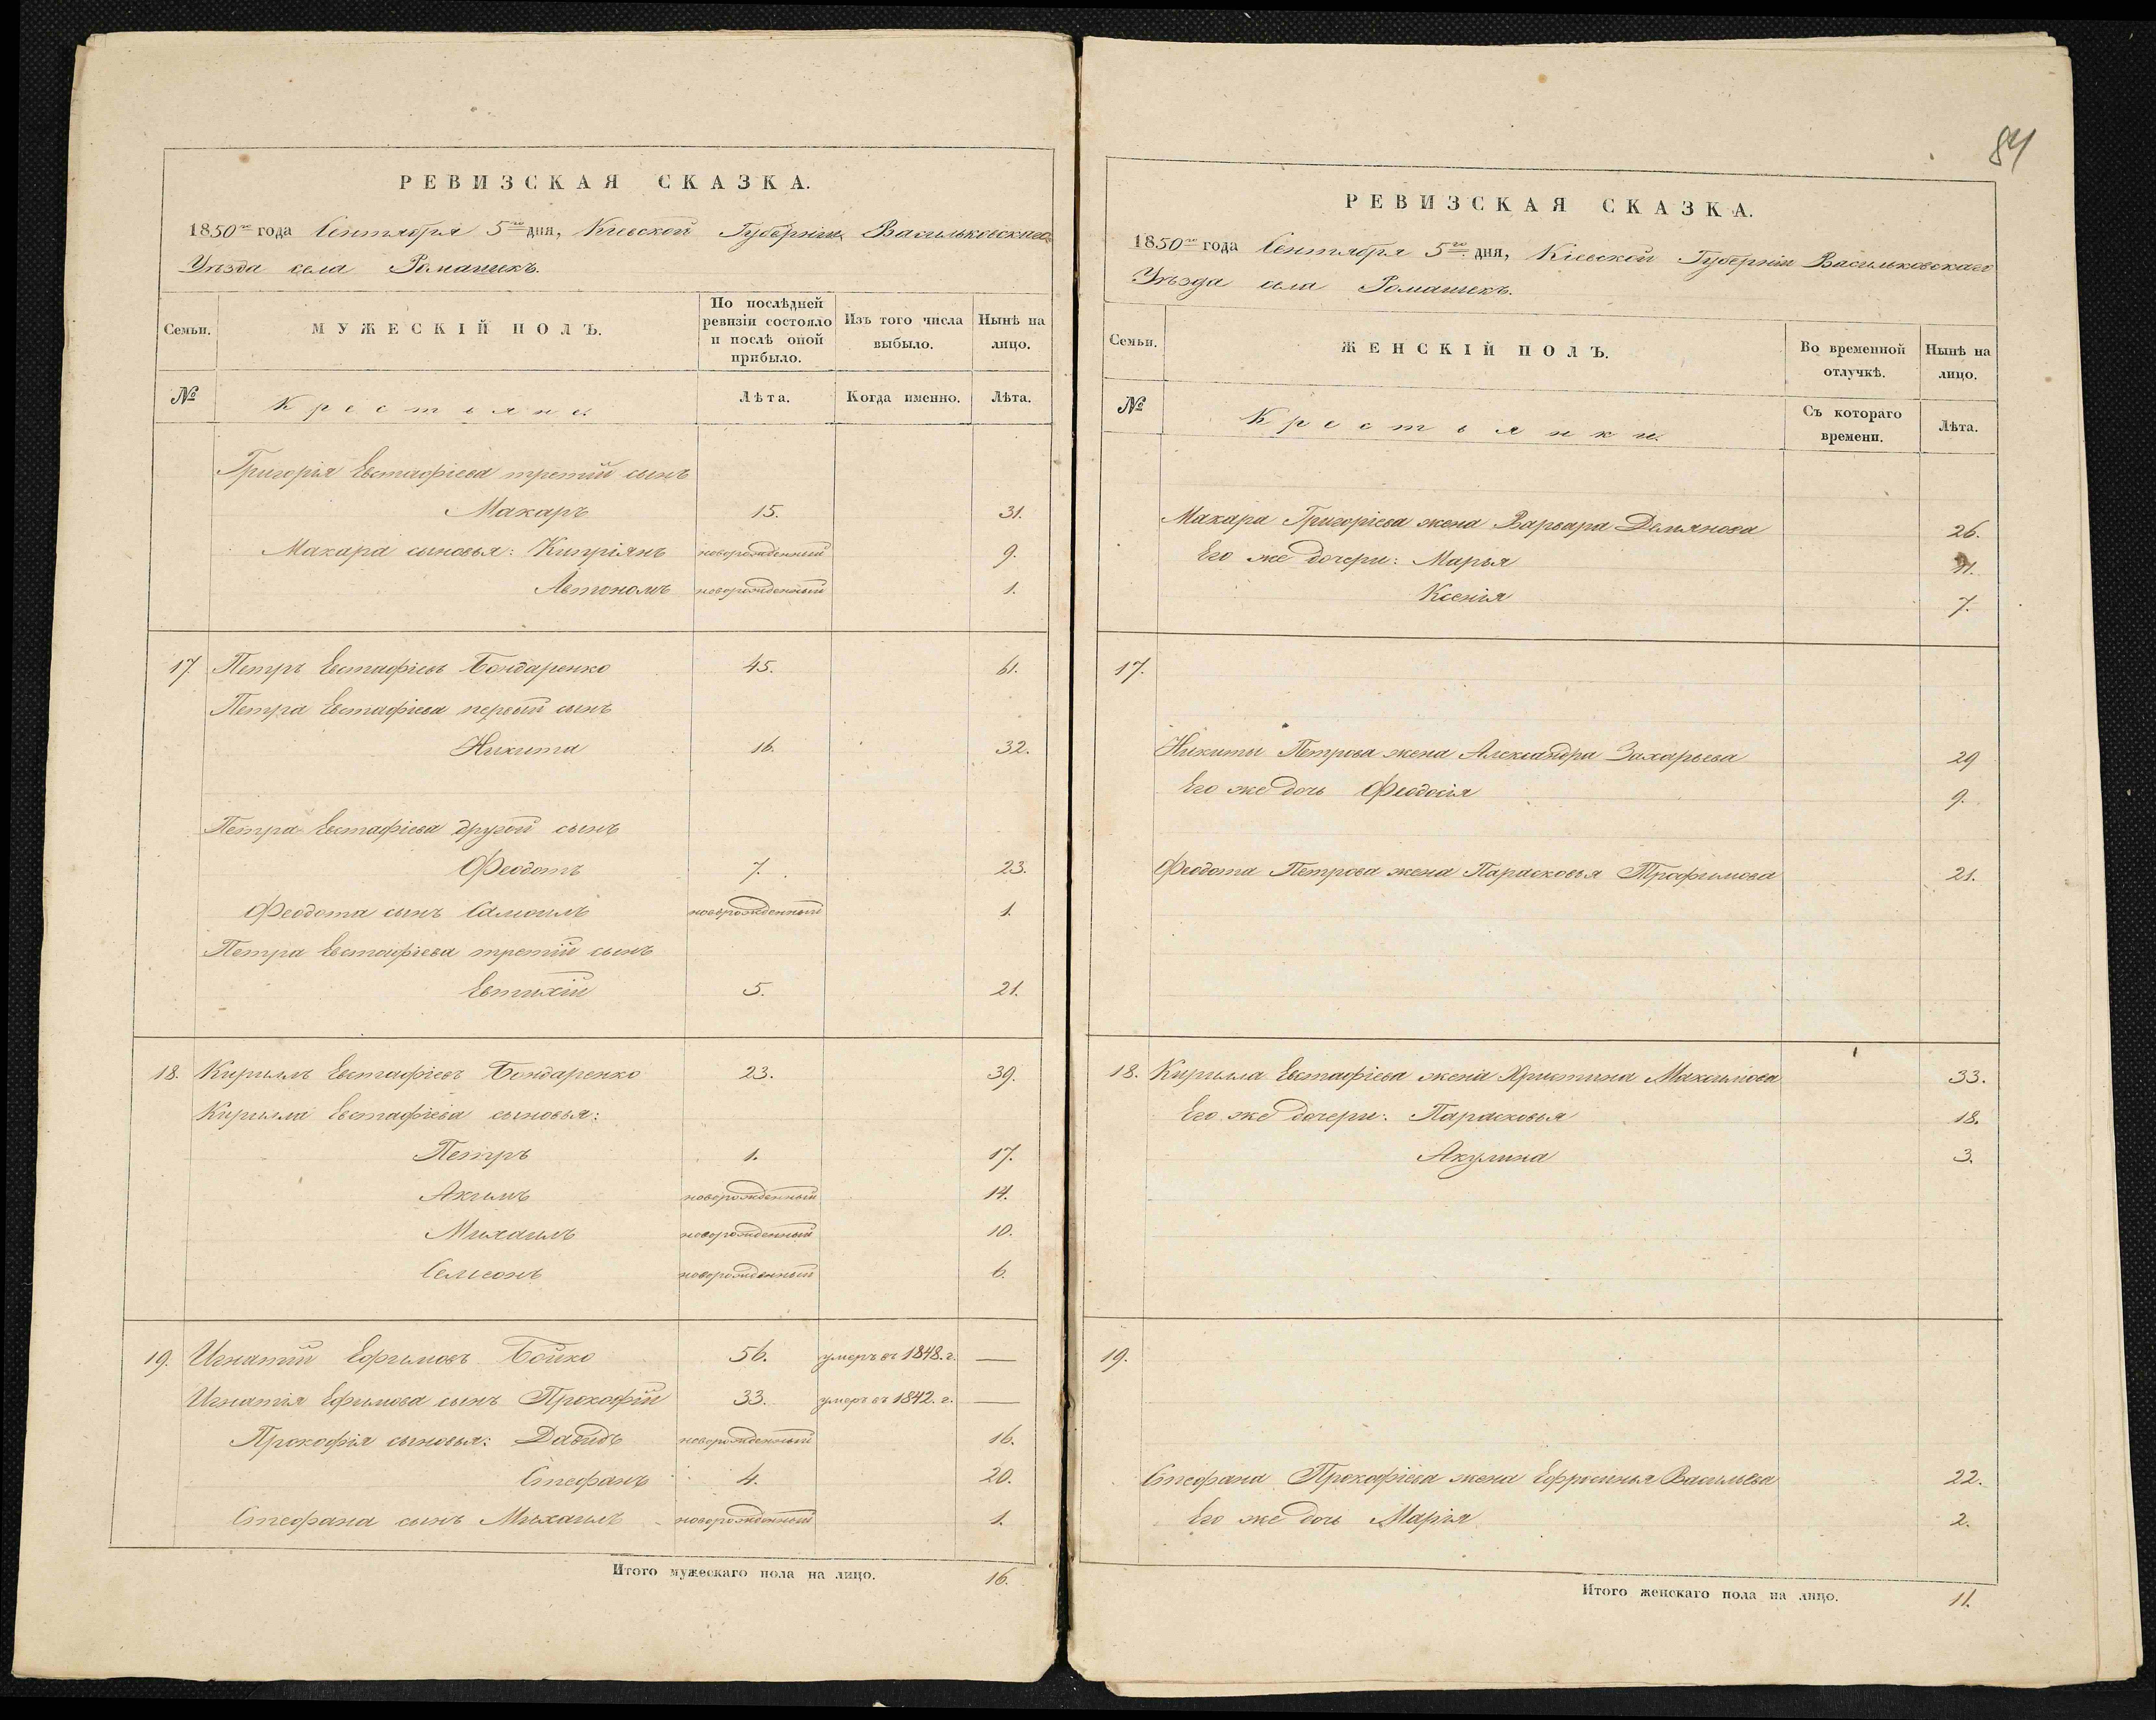 РЕВИЗСКАЯ СКАЗКА.
1850го года Сентября 5го дня, Кіевской Губерніи Васильковскаго
Уѣзда села Ромашекъ.
Семьи. МУЖЕСКІЙ ПОЛЪ. По послѣдней ревизіи состояло и послѣ оной прибыло. Изъ того числа выбыло. Нынѣ на лицо.
№ Крестьяне. Лѣта. Когда именно. Лѣта.
Григорія Евстафіева третій сынъ
Макаръ 15. 31.
Макара сыновья: Кипріянъ новорожденный 9.
Автономъ новорожденный 1.
17. Петръ Евстафіевъ Бондаренко 45. 61.
Петра Евстафіева первый сынъ
Никита 16. 32.
Петра Евстафіева другой сынъ
Феодотъ 7. 23.
Феодота сынъ Самоилъ новорожденный 1.
Петра Евстафіева третій сынъ
Евтихій 5. 21.
18. Кирилъ Евстафіевъ Бондаренко 23. 39.
Кирилла Евстафіева сыновья:
Петръ 1. 17.
Акимъ новорожденный 14.
Михаилъ новорожденный 10.
Семеонъ новорожденный 6.
19. Игнатій Ефимовъ Бойко 56. умеръ въ 1848. г. —
Игнатія Ефимова сынъ Прокофій 33. умеръ въ 1842. г. —
Прокофія сыновья: Давидъ новорожденный 16.
Стефанъ 4. 20.
Стефана сынъ Михаилъ новорожденный 1.
Итого мужескаго пола на лицо. 16.
84
РЕВИЗСКАЯ СКАЗКА.
1850го года Сентября 5го дня, Кіевской Губерніи Васильковскаго
Уѣзда села Ромашекъ.
Семьи. ЖЕНСКІЙ ПОЛЪ. Во временной отлучкѣ. Нынѣ на лицо.
№ Крестьянки. Съ котораго времени. Лѣта.
Макара Григоріева жена Варвара Демянова 26.
Его же дочери: Марья 11.
Ксенія 7.
17.
Никиты Петрова жена Александра Захарьева 29
Его же дочь Феодосія 9.
Феодота Петрова жена Парасковья Трофимова 21.
18. Кирилла Евстафіева жена Христина Максимова 33.
Его же дочери: Парасковья 18.
Акулина 3.
19.
Стефана Прокофіева жена Ефросинья Васильева 22.
Его же дочь Марія 2.
Итого женскаго пола на лицо. 11.